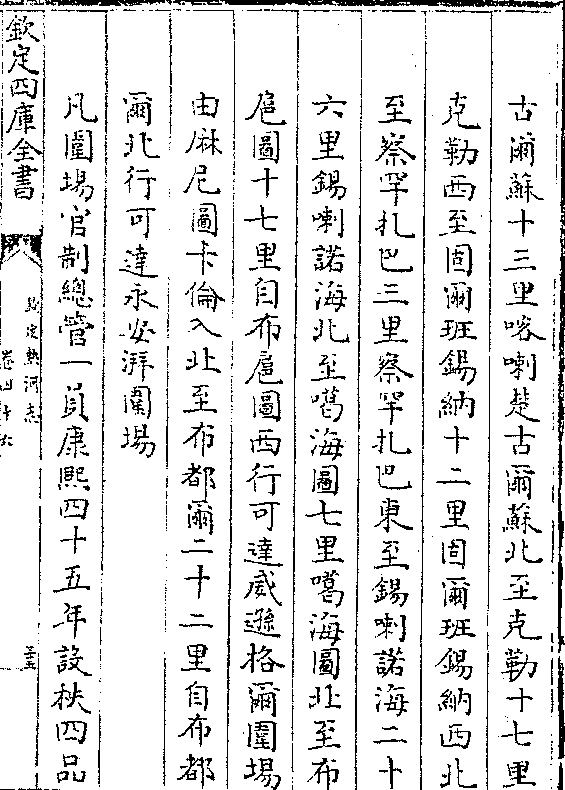 古爾蘇十三里喀喇楚古爾蘇北至克勒十七里
克勒西至固爾班錫納十二里固爾班錫納西北
至察罕扎巴三里察罕扎巴東至錫喇諾海二十
六里錫喇諾海北至噶海圖七里噶海圖北至布
扈圖十七里自布扈圖西行可達威遜格爾圍場
由麻尼圖卡倫入北至布都爾二十二里自布都
爾北行可達永安湃圍場
凡圍場官制總管一員康熙四十五年設秩四品
欽定四庫全書
欽定熱河志
卷四十六